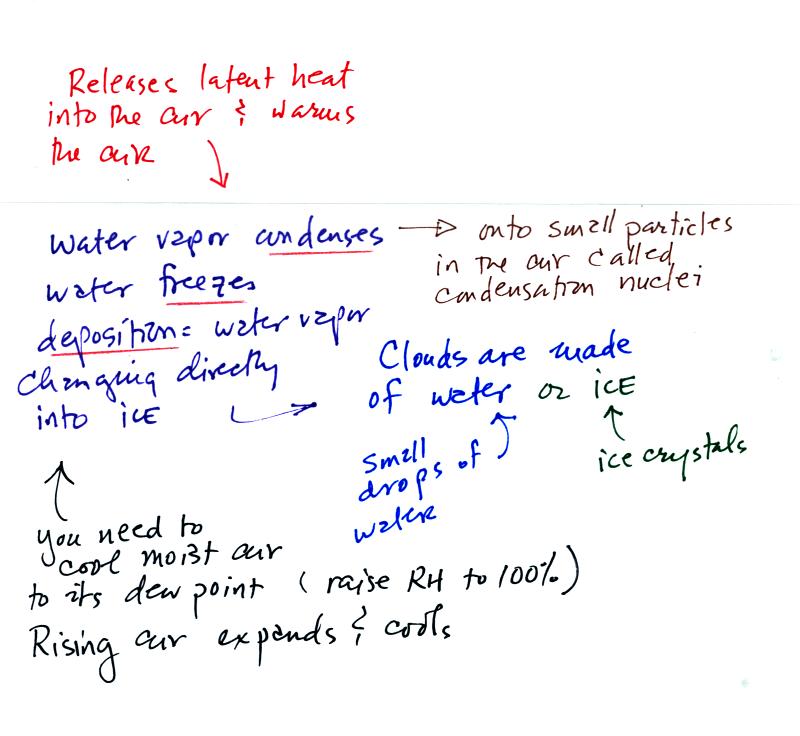 Releases latent heat
into the air & warms
the air
water vapor condenses → onto small particles
in the air called
condensation nuclei
water freezes
deposition = water vapor
changing directly
into ICE
Clouds are made
of water or ICE
small
drops of
water
ice crystals
you need to
cool moist air
to its dew point (raise RH to 100%)
Rising air expands & cools